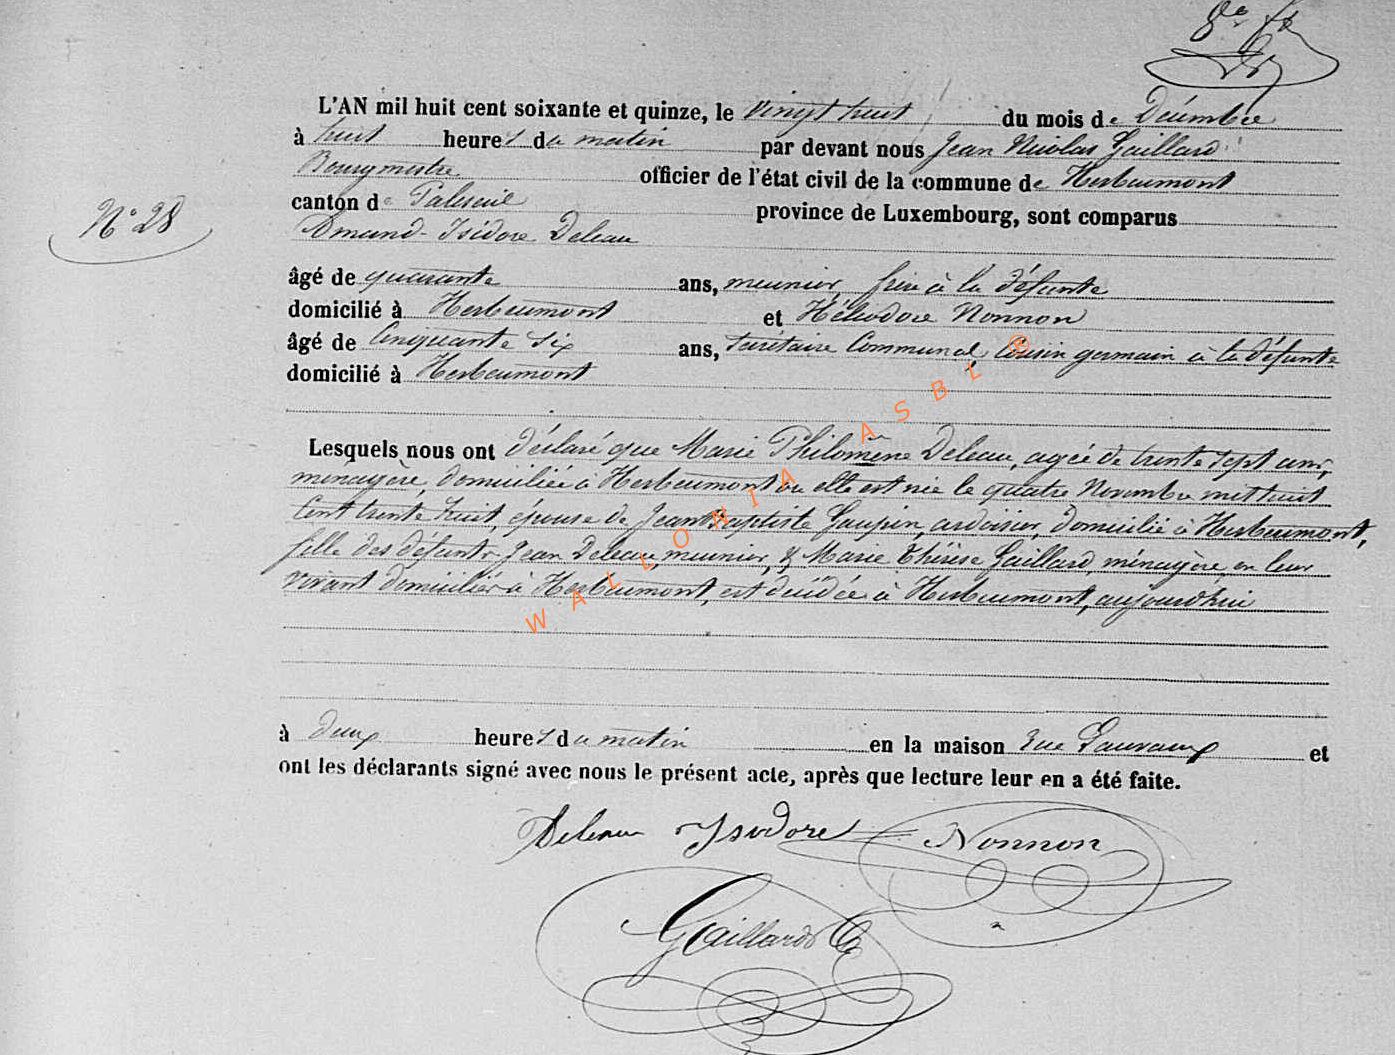 L'AN mil huit cent soixante et quinze, le vingt huit du mois de Décembre
à huit heures du matin par devant nous Jean Nicolas Gaillard
Bourgmestre officier de l'état civil de la commune de Herbeumont
N° 28
canton de Paliseul province de Luxembourg, sont comparus
Amand-Isidore Deleau
âgé de quarante ans, meunier, frère à la défunte
domicilié à Herbeumont et Héliodore Nonnon
âgé de Cinquante Six ans, Secrétaire Communal, Cousin germain à la défunte
domicilié à Herbeumont
Lesquels nous ont déclaré que Marie Philomène Deleau, agée de trente sept ans,
ménagère, domiciliée à Herbeumont ou elle est née le quatre Novembre mil huit
Cent trente huit, épouse de Jean Baptiste Gaupin, ardoisier, domicilié à Herbeumont,
fille des défunts Jean Deleau, meunier, & Marie Thérèse Gaillard, ménagère, en leur
vivant domiciliés à Herbeumont, est décédée à Herbeumont, aujourd'hui
à deux heures du matin en la maison rue Lauvaux et
ont les déclarants signé avec nous le présent acte, après que lecture leur en a été faite.
Deleau Isidore Nonnon
Gaillard
WALLONIA ASBL ®